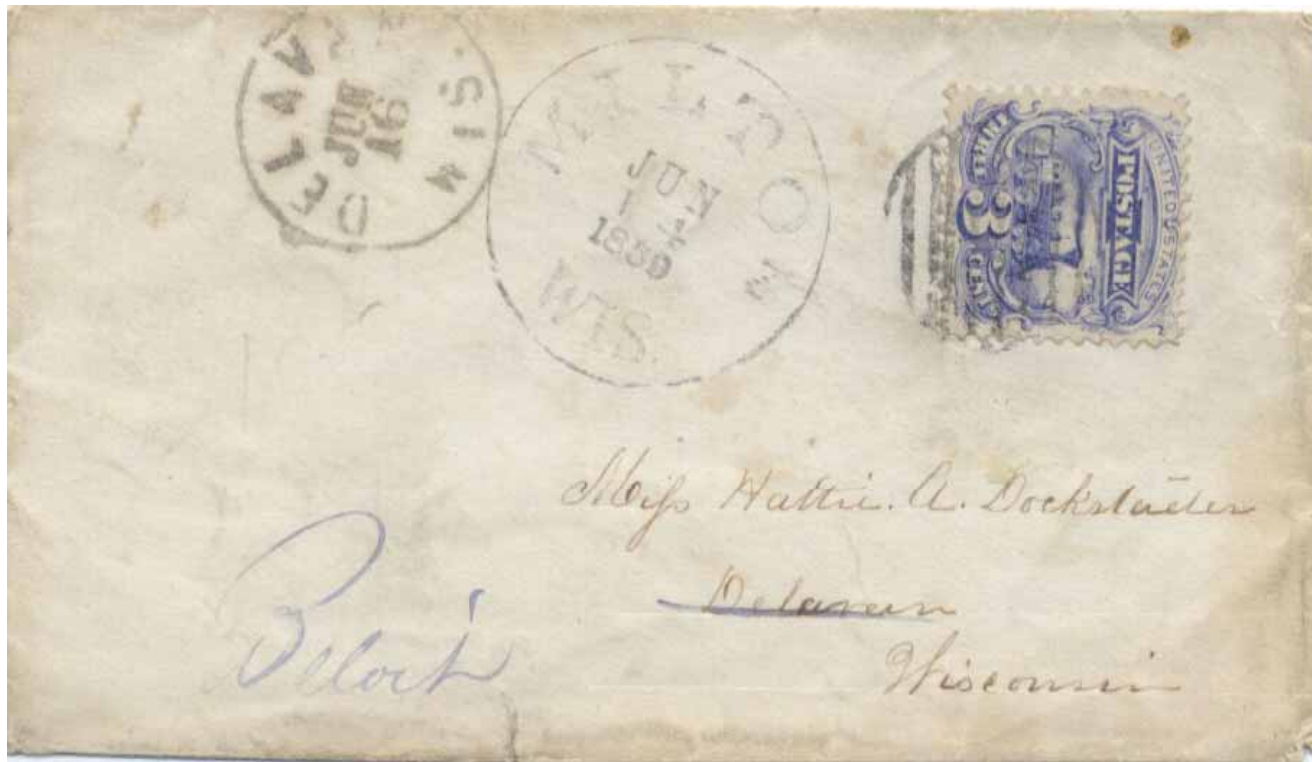 DELAVA WIS.
JUN
16
WIS.
JUN
1880
UNITED STATES
POSTAGE
THREE 3 CENTS
Miss Hattie. A. Dockstader
Delavan
Wisconsin
Beloit